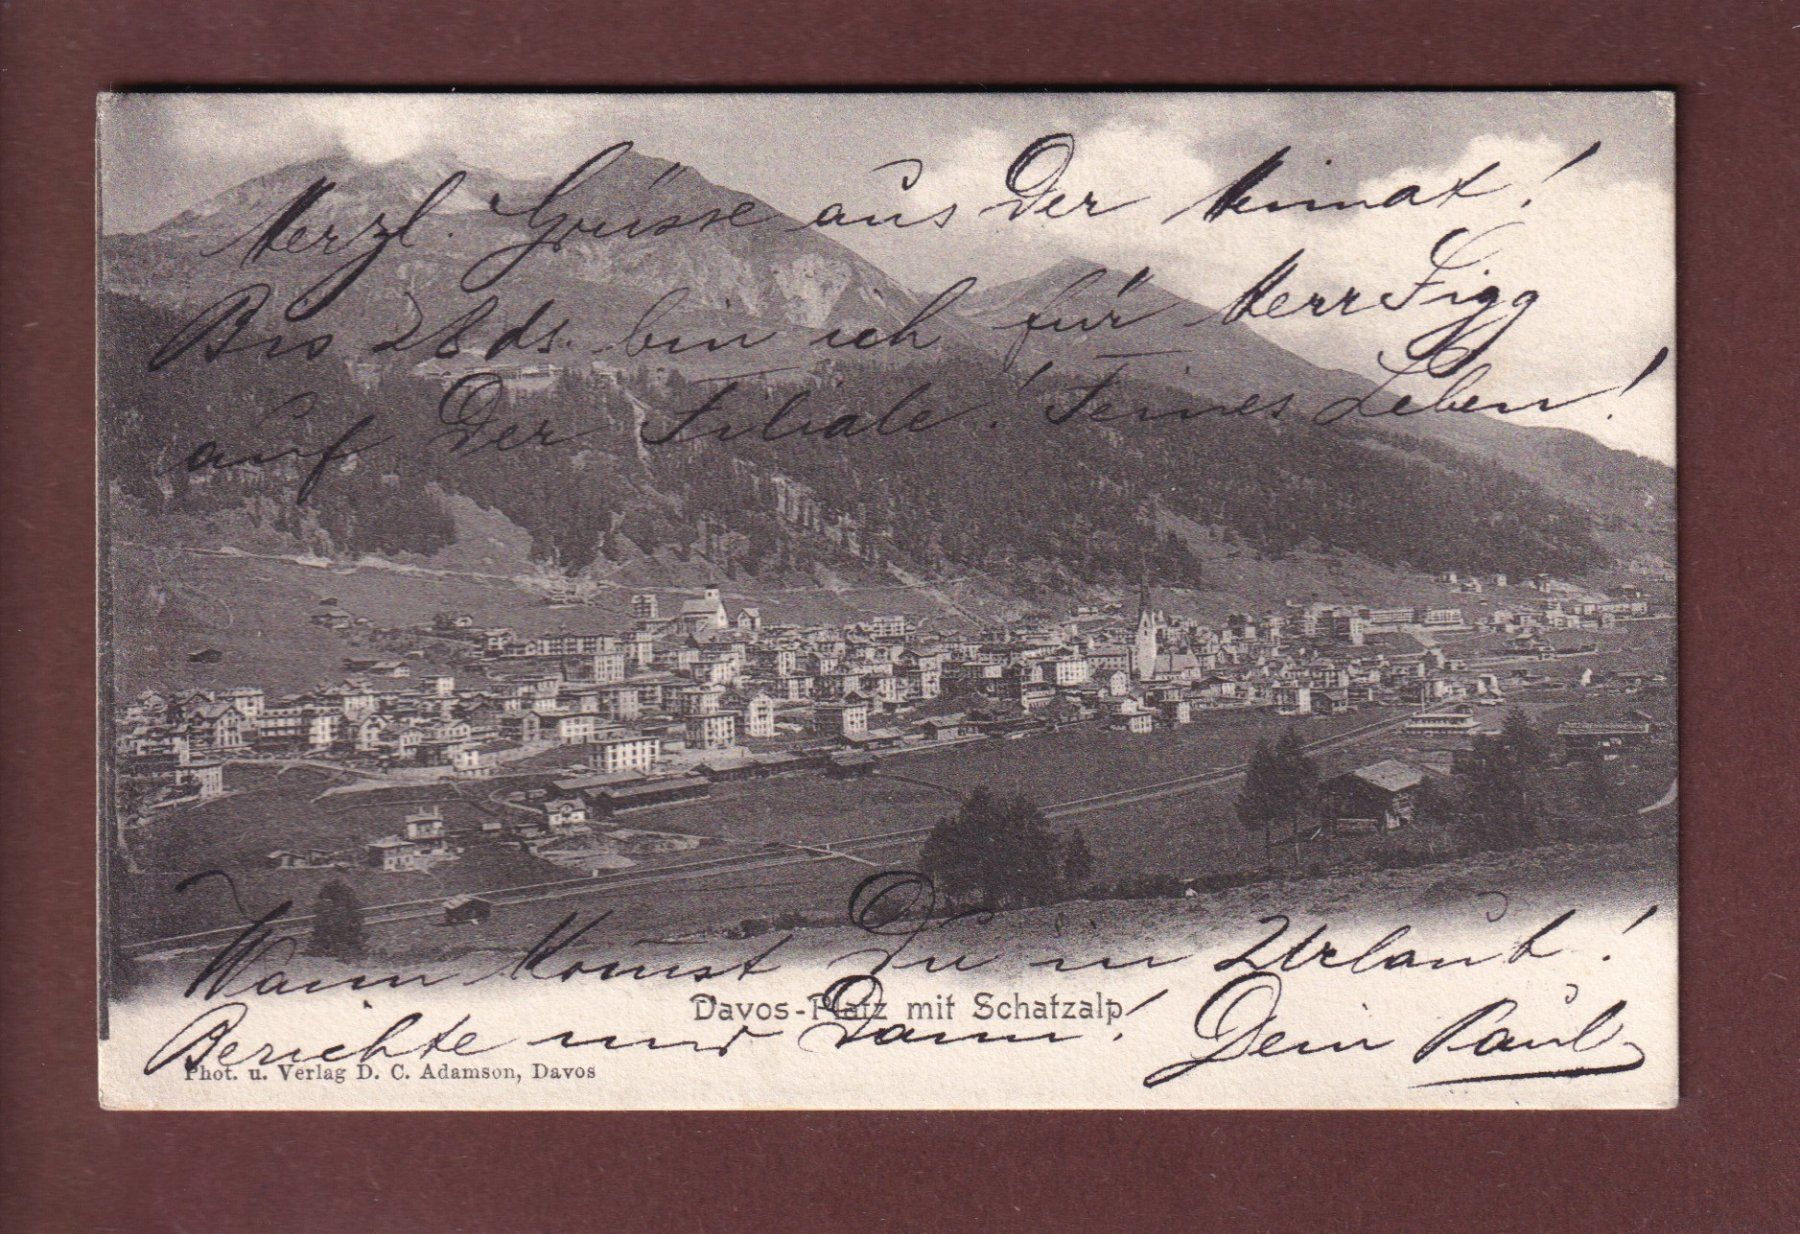 Herzl. Grüsse aus der Heimat!
Bis 28 ds. bin ich für Herr Figg
auf der Filiale! Feines Leben!
Wann komst Du in Urlaub!
Davos-Platz mit Schatzalp
Berichte mir dann! Dein Paul
Phot. u. Verlag D. C. Adamson, Davos